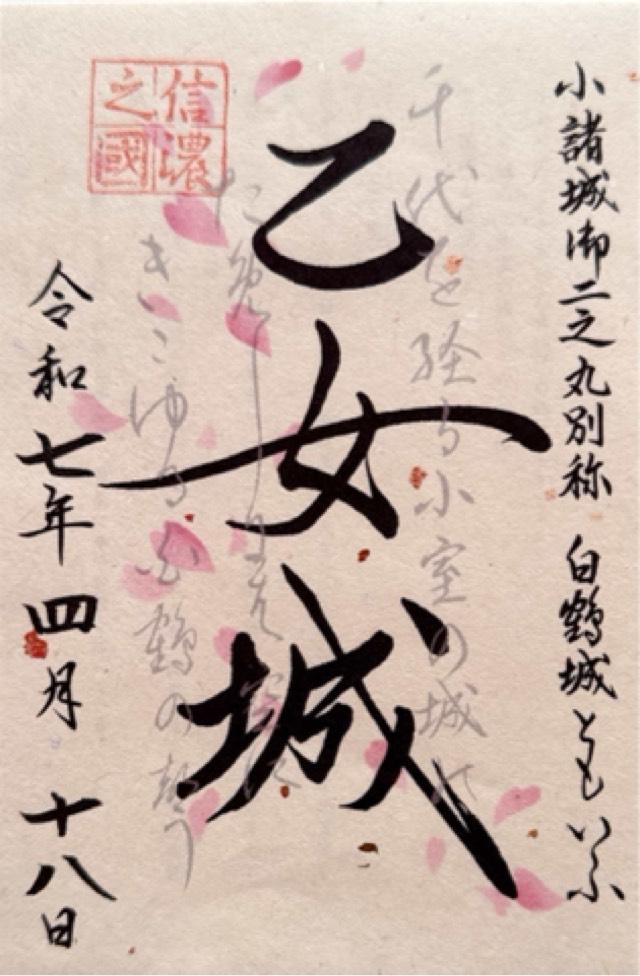 小諸城御二之丸別称 白鶴城ともいふ
千代を経る小室の城の
乙女城
きこゆる白鶴の声
信濃之國
令和七年四月十八日